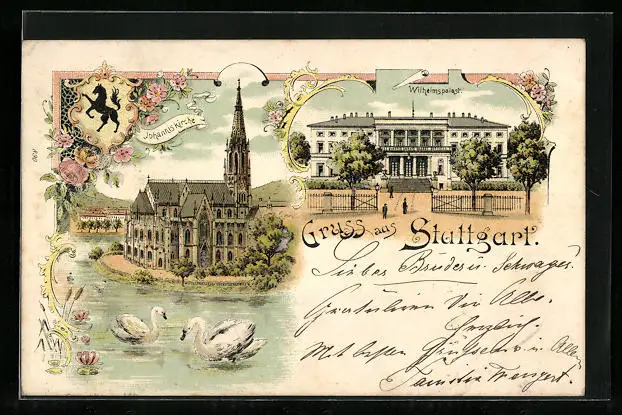 Johanniskirche
Wilhelmspalast.
Gruss aus Stuttgart.
Lieber Bruder u. Schwager.
Gratulieren Dir Alle.
Herzlich.
Mit besten in Allen
Familie